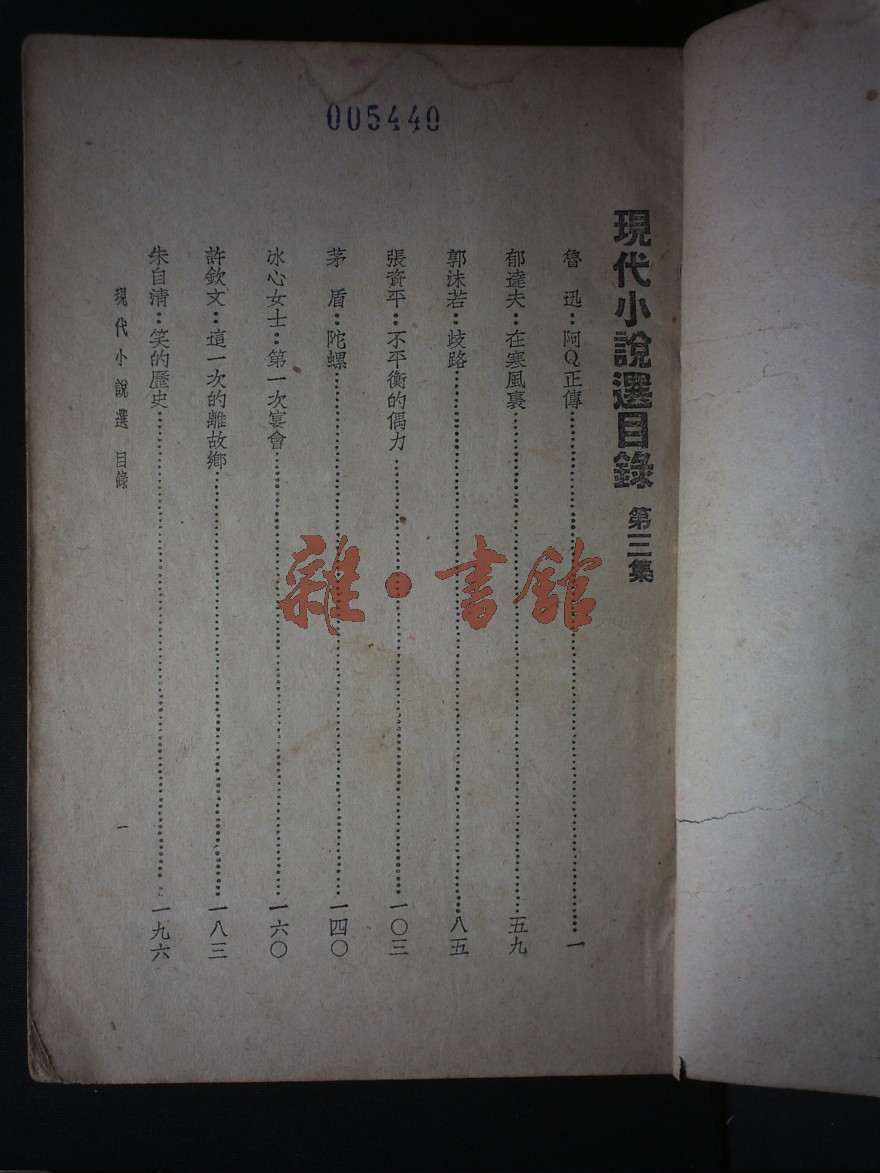 005440
現代小說選目錄 第三集
魯迅：阿Q正傳……一
郁達夫：在寒風裏……五九
郭沫若：歧路……八五
張資平：不平衡的偶力……一〇三
茅盾：陀螺……一四〇
冰心女士：第一次宴會……一六〇
許欽文：這一次的離故鄉……一八三
朱自清：笑的歷史……一九六
現代小說選 目錄 一
雜·書館